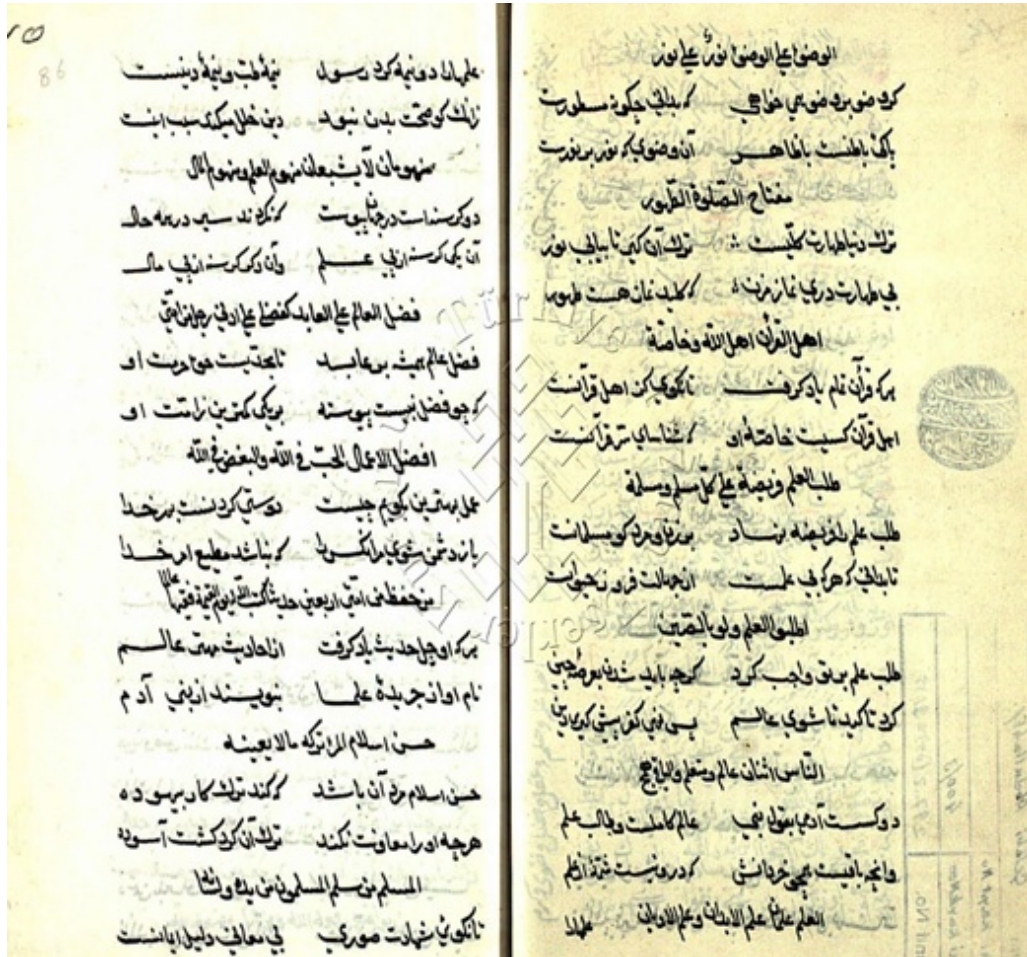 الوضوء علی الوضوء نورٌ علی نور
که بدانی چگونه مسطورست
پاکی باطنست با ظاهر آن وضوی که نور بر نورست
مفتاح الصلوة الطهور
ترک دنیا طهارت کلیست ترک آن کن تا بیابی نور
بی طهارت دری نماز مزن که کلید نماز هست طهور
اهل القرآن اهل الله وخاصته
هرکه قرآن تمام یاد گرفت تا نگویی کز اهل قرآنست
اهل قرآن کسیست خاصه او که شناسای سر قرآنست
طلب العلم فریضة علی کل مسلم ومسلمة
طلب علم را فریضه نهاد بر زن و مرد کو مسلمانست
تا بدانی که هرکه بی علمست از جهالت فرون ز حیوانست
اطلبوا العلم ولو بالصین
طلب علم بر تو واجب کرد گرچه باید شدن بعرصه چین
کرد تاکید تا شوی عالم
الناس اثنان عالم ومتعلم والباقی همج
دو کسست آدمی بقول نبی عالم کاملست وطالب علم
وانچه باقیست همجی خوانش که درو نیست
العلم علمان علم الابدان وعلم الادیان
علمها
علمها را دو نیمه کرد رسول نیمه طب و نیمه دینست
زانک کو صحت بدن نبود دین خلل میگیرد سبب اینست
منهومان لا یشبعان منهوم العلم ومنهوم المال
دو گرسنه است در جهان پیوست که نگردند سیر در همه حال
آن یکی گرسنه از پی علم وآن دگر گرسنه از پی مال
فضل العالم علی العابد کفضلی علی ادنی رجل من امتی
فضل عالم همیشه بر عابد
که چو فضل نبیست پیوسته بر یکی کمترین ز امت او
افضل الاعمال الحب فی الله والبغض فی الله
عمل بهترین بگویم چیست دوستی کردنست بهر خدا
باز دشمن شوی مرانکس را که نباشد مطیع امر خدا
من حفظ من امتی اربعین حدیثا کتب الله یوم القیمة فقیها عالما
هرکه او چل حدیث یاد گرفت از احادیث مهتر عالم
نام او از جریده علما بنویسند از بنی آدم
حسن اسلام المرء ترکه مالا یعنیه
حسن اسلام مرد آن باشد که کند ترک کار بیهوده
هرچه او را معاونت نکند ترک آن کرد گشت آسوده
المسلم من سلم المسلمون من یده ولسانه
تا نگویی شهادت صوری بی معانی دلیل ایمانست